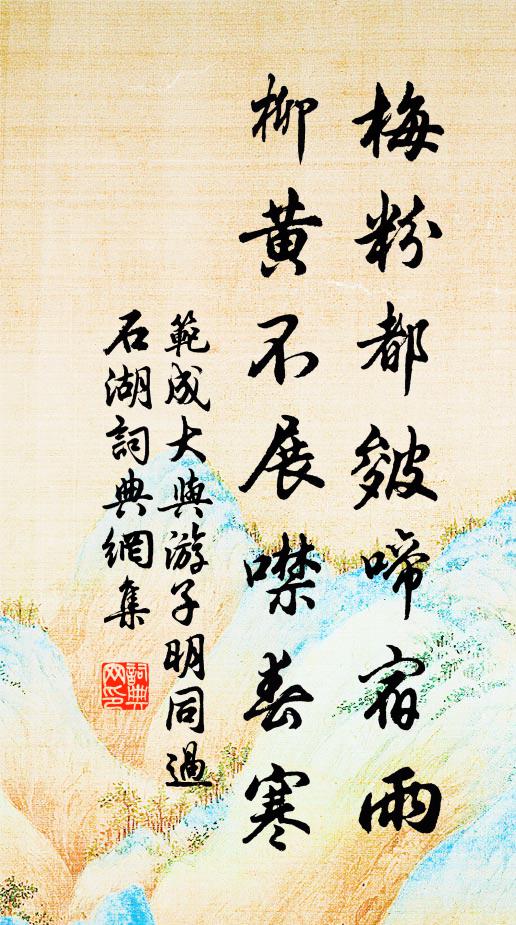 梅粉都皴啼宿雨
柳黄不展噤春寒
範成大與游子明同過
石湖詞典網集
詞典
网印